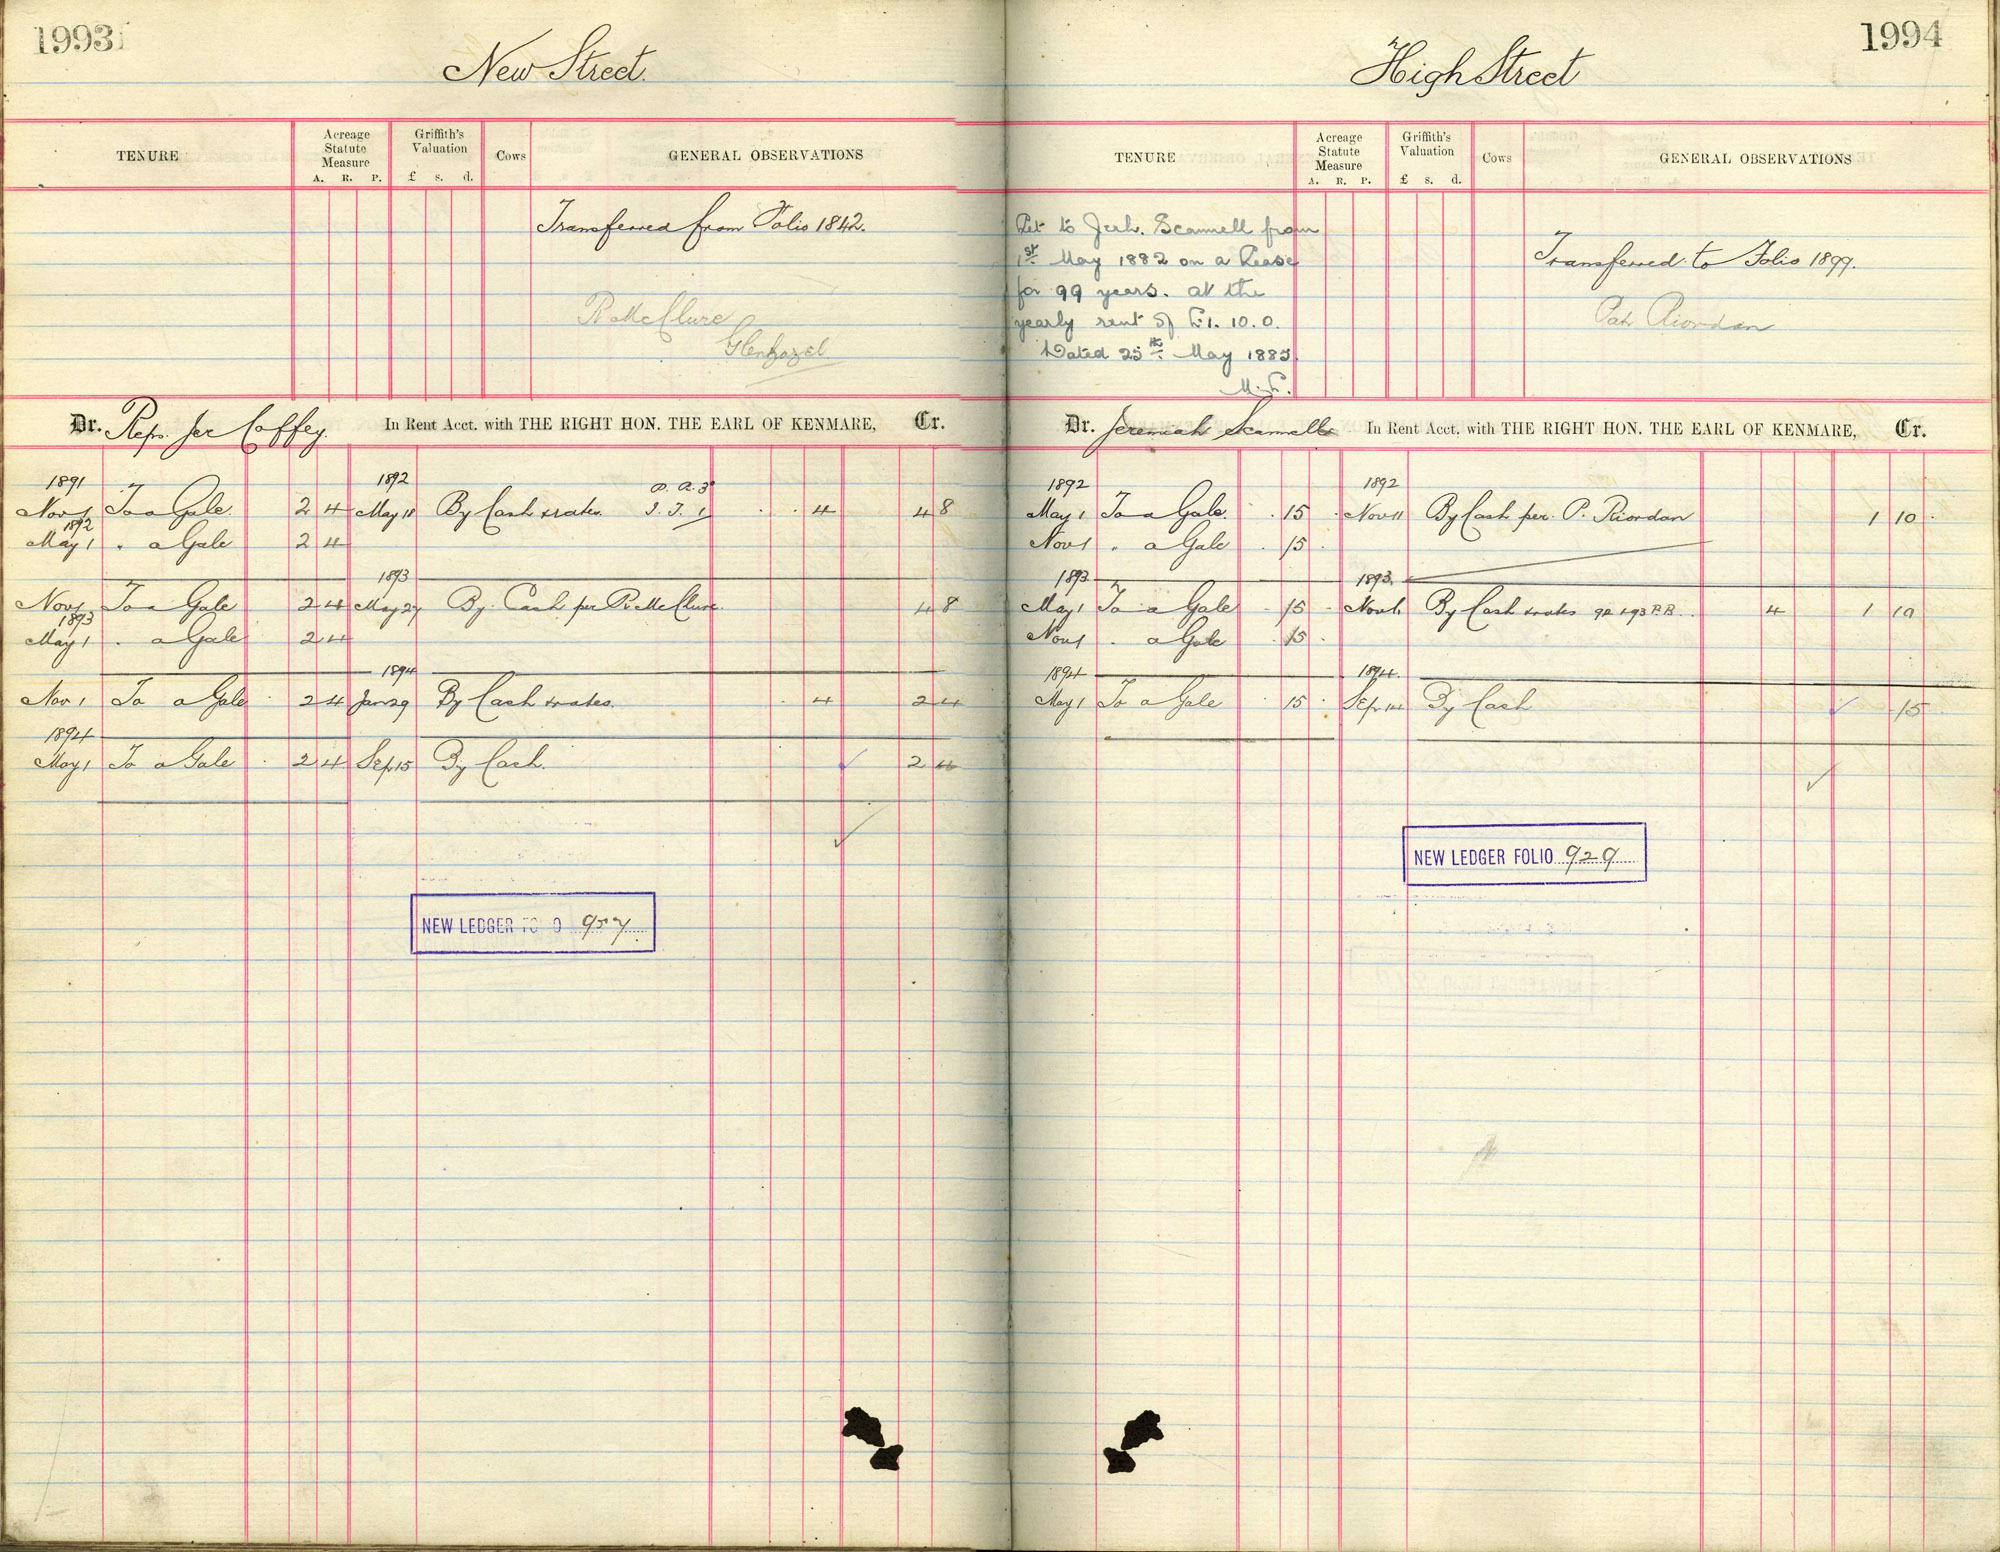 1993
New Street.
TENURE
Acreage Statute Measure
A. R. P.
Griffith's Valuation
£ s. d.
Cows
GENERAL OBSERVATIONS
Transferred from Folio 1842.
R McClure
Dr. Reps. Jer Coffey. In Rent Acct. with THE RIGHT HON. THE EARL OF KENMARE, Cr.
1891 1892
Nov 1 To a Gale. 2 4 May 18 By Cash & rates. 4 4 8
1892
May 1 " a Gale 2 4
1893
Nov 1 To a Gale 2 4 May 27 By Cash per R. McClure. 4 8
1893
May 1 " a Gale 2 4
1894
Nov 1 To a Gale 2 4 Jan 29 By Cash & rates. 4 2 4
1894
May 1 To a Gale 2 4 Sep 15 By Cash. 2 4
NEW LEDGER FOLIO 957
1994
High Street
TENURE
Acreage Statute Measure
A. R. P.
Griffith's Valuation
£ s. d.
Cows
GENERAL OBSERVATIONS
Let to Jerh. Scannell from
1st May 1882 on a Lease
for 99 years. at the
yearly rent of £1. 10. 0.
Dated 25th May 1885.
Transferred to Folio 1899.
Pat Riordan
Dr. Jeremiah Scannell In Rent Acct. with THE RIGHT HON. THE EARL OF KENMARE, Cr.
1892 1892
May 1 To a Gale. 15 Nov 11 By Cash per P. Riordan 1 10
Nov 1 " a Gale 15
1893 1893.
May 1 To a Gale 15 Nov 6 By Cash & rates 92 & 93 P.R. 4 1 10
Nov 1 " a Gale 15
1894 1894.
May 1 To a Gale 15 Sep 14 By Cash 15
NEW LEDGER FOLIO 929